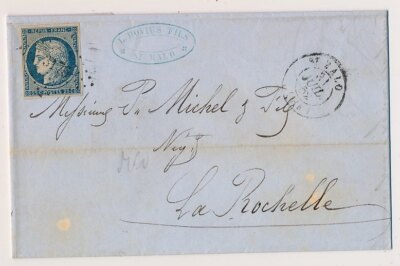 REPUB. FRANC.
L. HOVIUS FILS
ST MALO
ST MALO
31
JUIL
Messieurs P. Michel & Fils
Nég.
La Rochelle